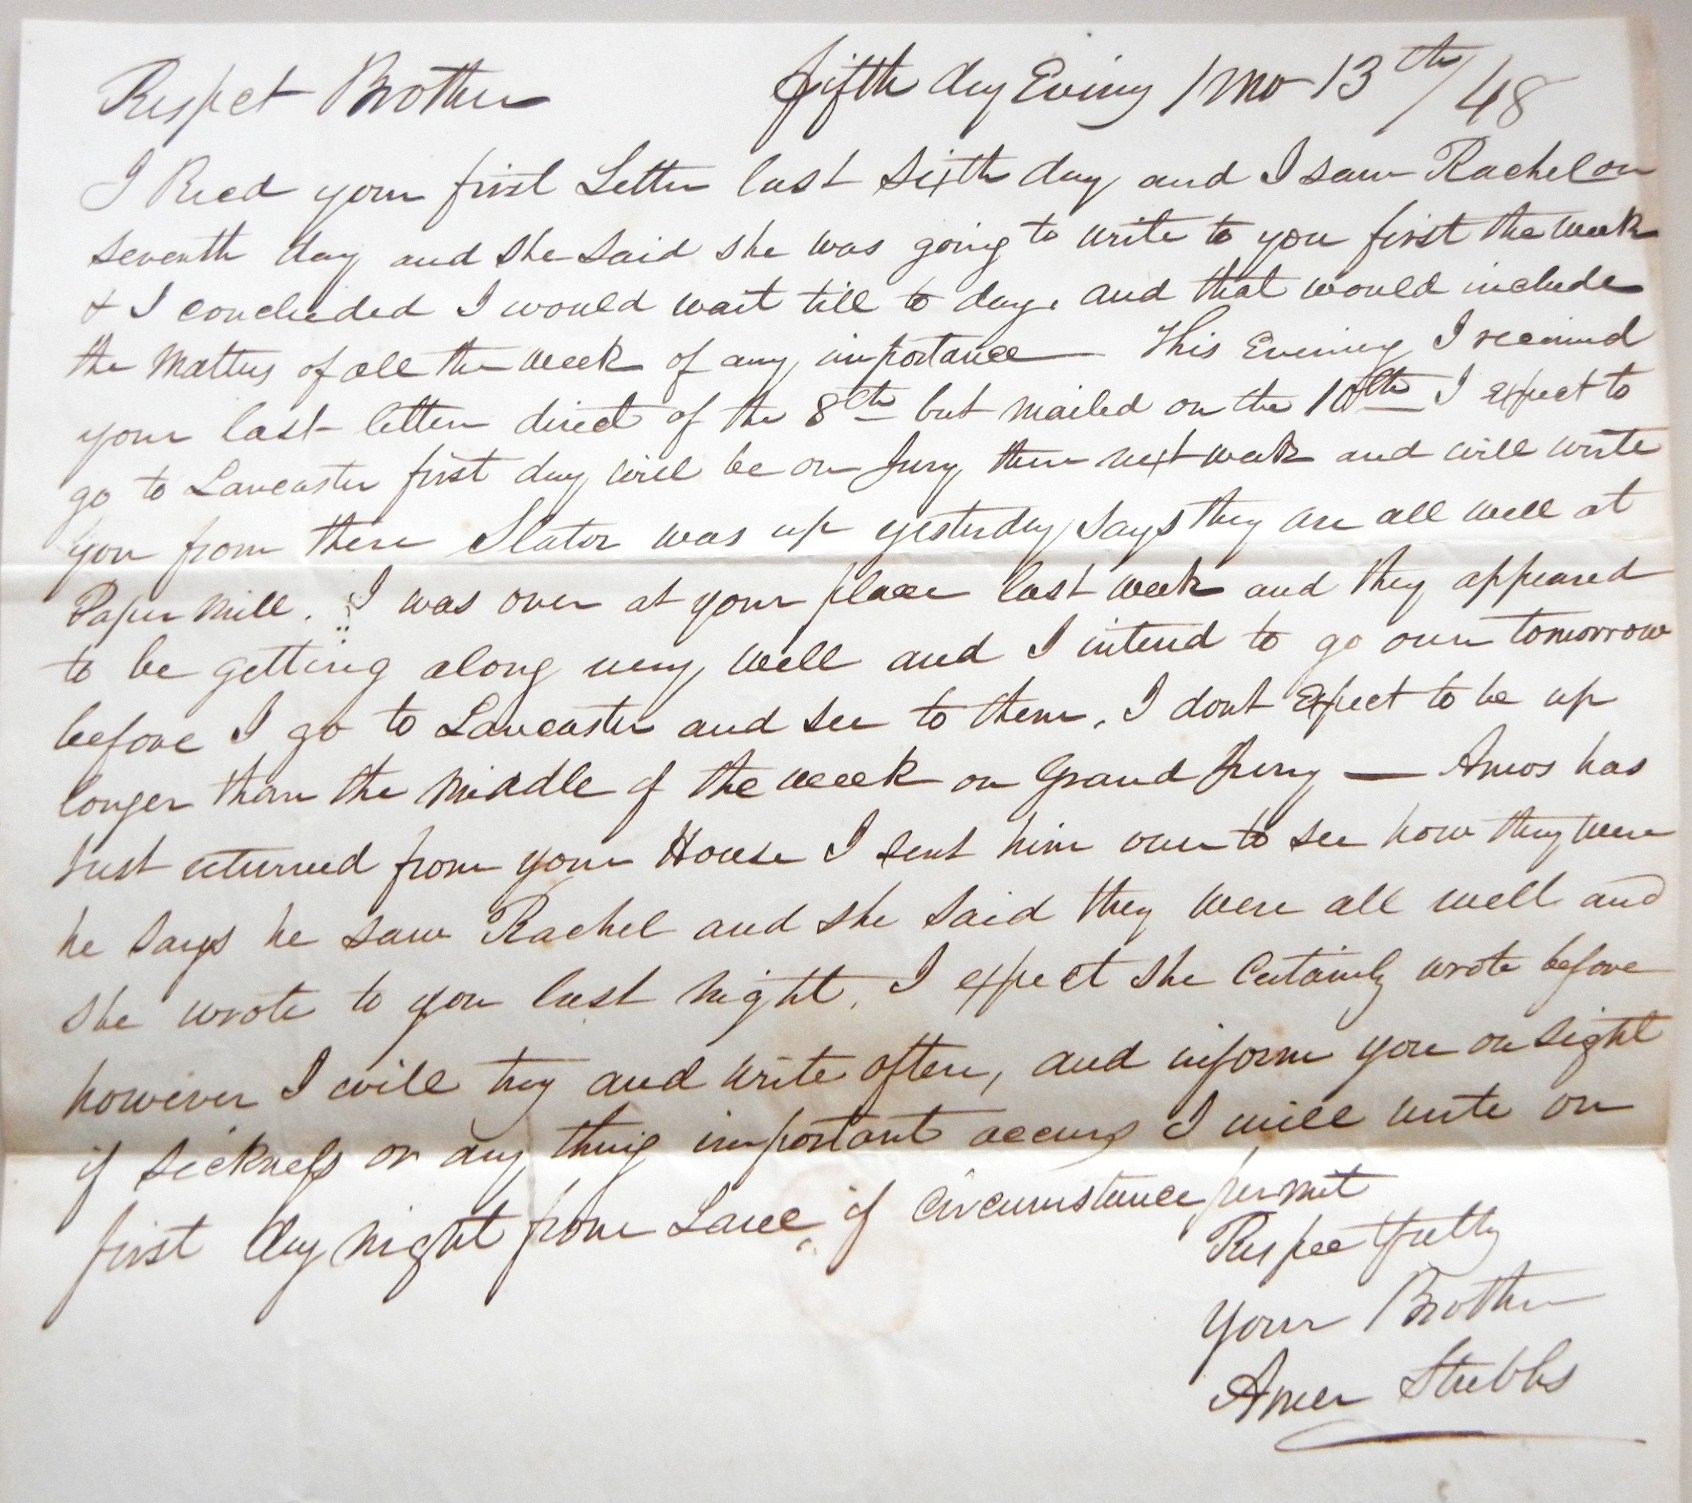 Respet Brother fifth day Evening 1 mo 13th/48
I Recd your first Letter last sixth day and I saw Rachel on
seventh day and she said she was going to write to you first the week
& I concluded I would wait till to day. and that would include
the matters of all the week of any importance — This Evening I received
your last letter direct of the 8th but mailed on the 10th I expect to
go to Lancaster first day will be on Jury there next week and will write
you from there Slator was up yesterday says they are all well at
Paper mill. I was over at your place last week and they appeared
to be getting along very well and I intend to go over tomorrow
before I go to Lancaster and see to them. I dont Expect to be up
longer than the middle of the week on Grand Jury — Amos has
Just returned from your House I sent him over to see how they were
he says he saw Rachel and she said they were all well and
she wrote to you last night. I expect she Certainly wrote before
however I will try and write often, and inform you on sight
if sickness or any thing important occurs I will write on
first day night from Lanc. if Circumstance permit
Respectfully
your Brother
Amer Stubbs